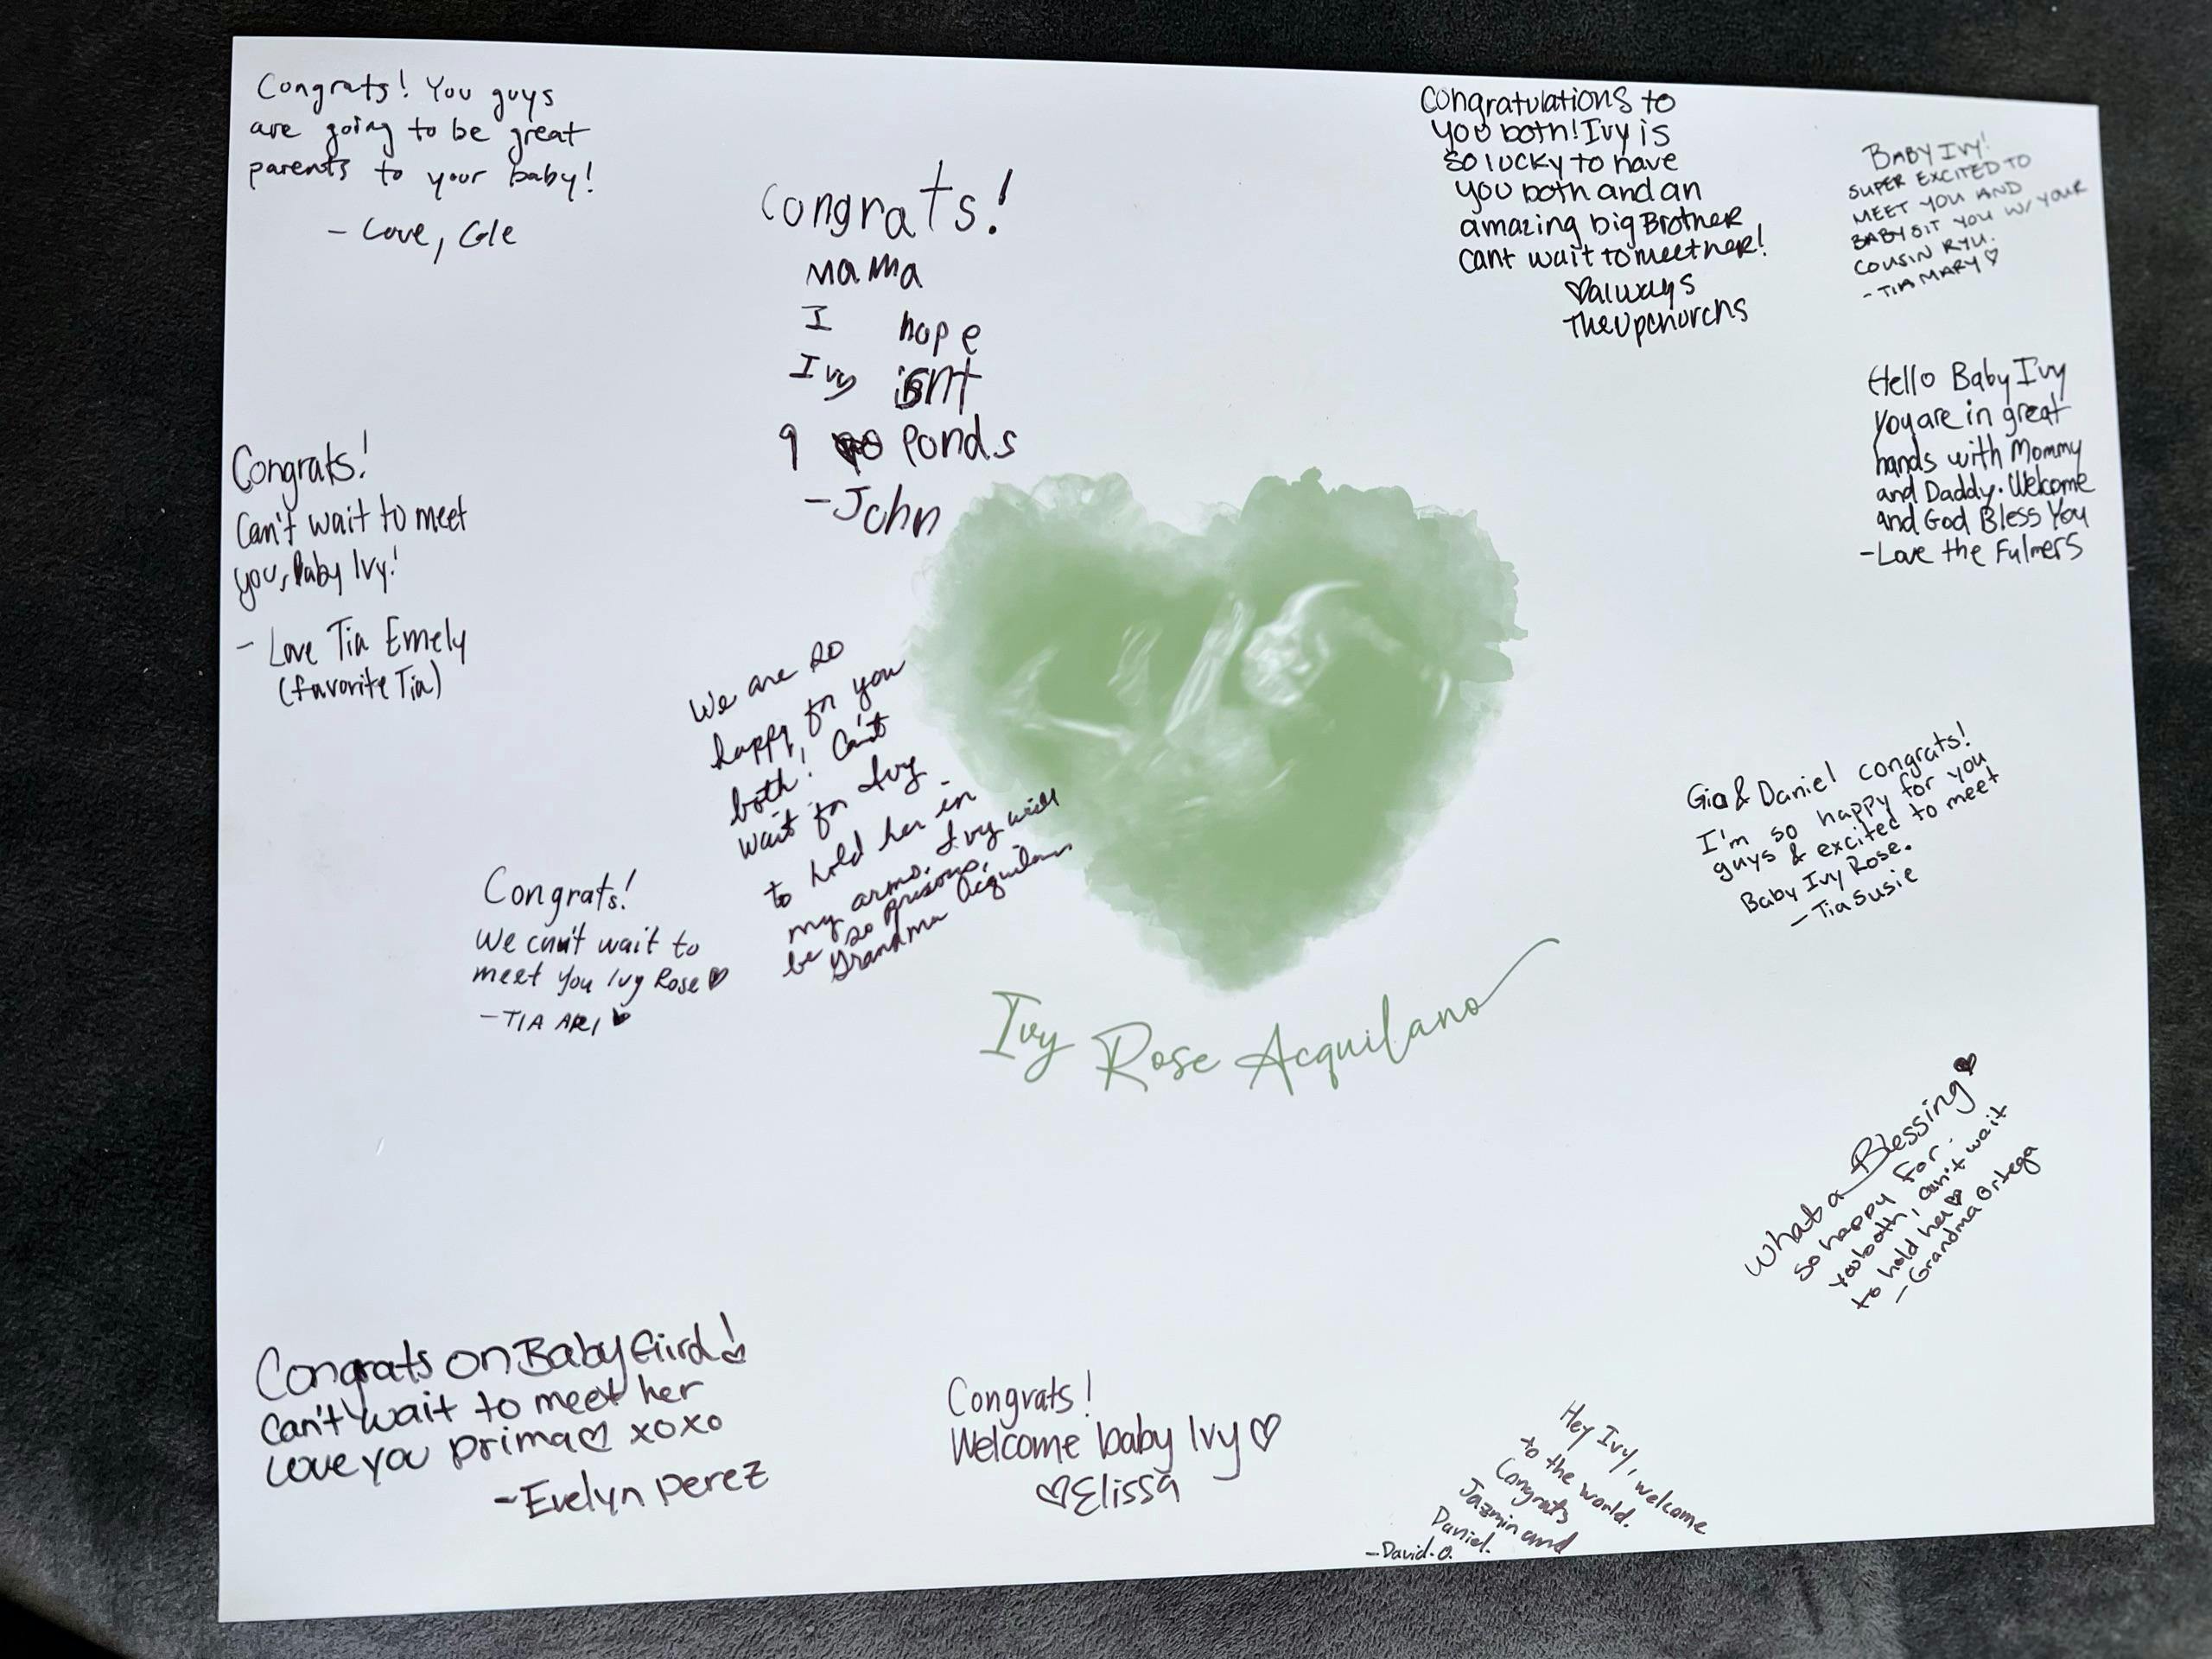 Congrats! You guys
are going to be great
parents to your baby!
- Love, Cole
Congrats!
MaMa
I hope
Ivy isnt
9 Ponds
-John
Congratulations to
you both! Ivy is
so lucky to have
you both and an
amazing big Brother
cant wait to meet her!
♡always
The Upchurchs
BABY IVY!
SUPER EXCITED TO
MEET YOU AND
BABYSIT YOU W/ YOUR
COUSIN RYU.
- TIA MARY ♡
Hello Baby Ivy
You are in great
hands with Mommy
and Daddy. Welcome
and God Bless You
-Love the Fulmers
Congrats!
Can't wait to meet
you, Baby Ivy!
- Love Tia Emely
(favorite Tia)
We are so
happy for you
both! Can't
wait for Ivy
to hold her in
my arms. Ivy will
be so
Grandma Acquilano
Congrats!
We can't wait to
meet you Ivy Rose ♡
-TIA ARI ♥
Gia & Daniel congrats!
I'm so happy for you
guys & excited to meet
Baby Ivy Rose.
- Tia Susie
Ivy Rose Acquilano
What a Blessing ♥
So happy for
you both, can't wait
to hold her ♡
- Grandma Ortega
Congrats on Baby Gird!
Can't wait to meet her
Love you prima ♡ xoxo
-Evelyn Perez
Congrats!
Welcome baby Ivy ♡
♡Elissa
Hey Ivy, welcome
to the world.
Congrats
Jazmin and
Daniel.
-David.O.